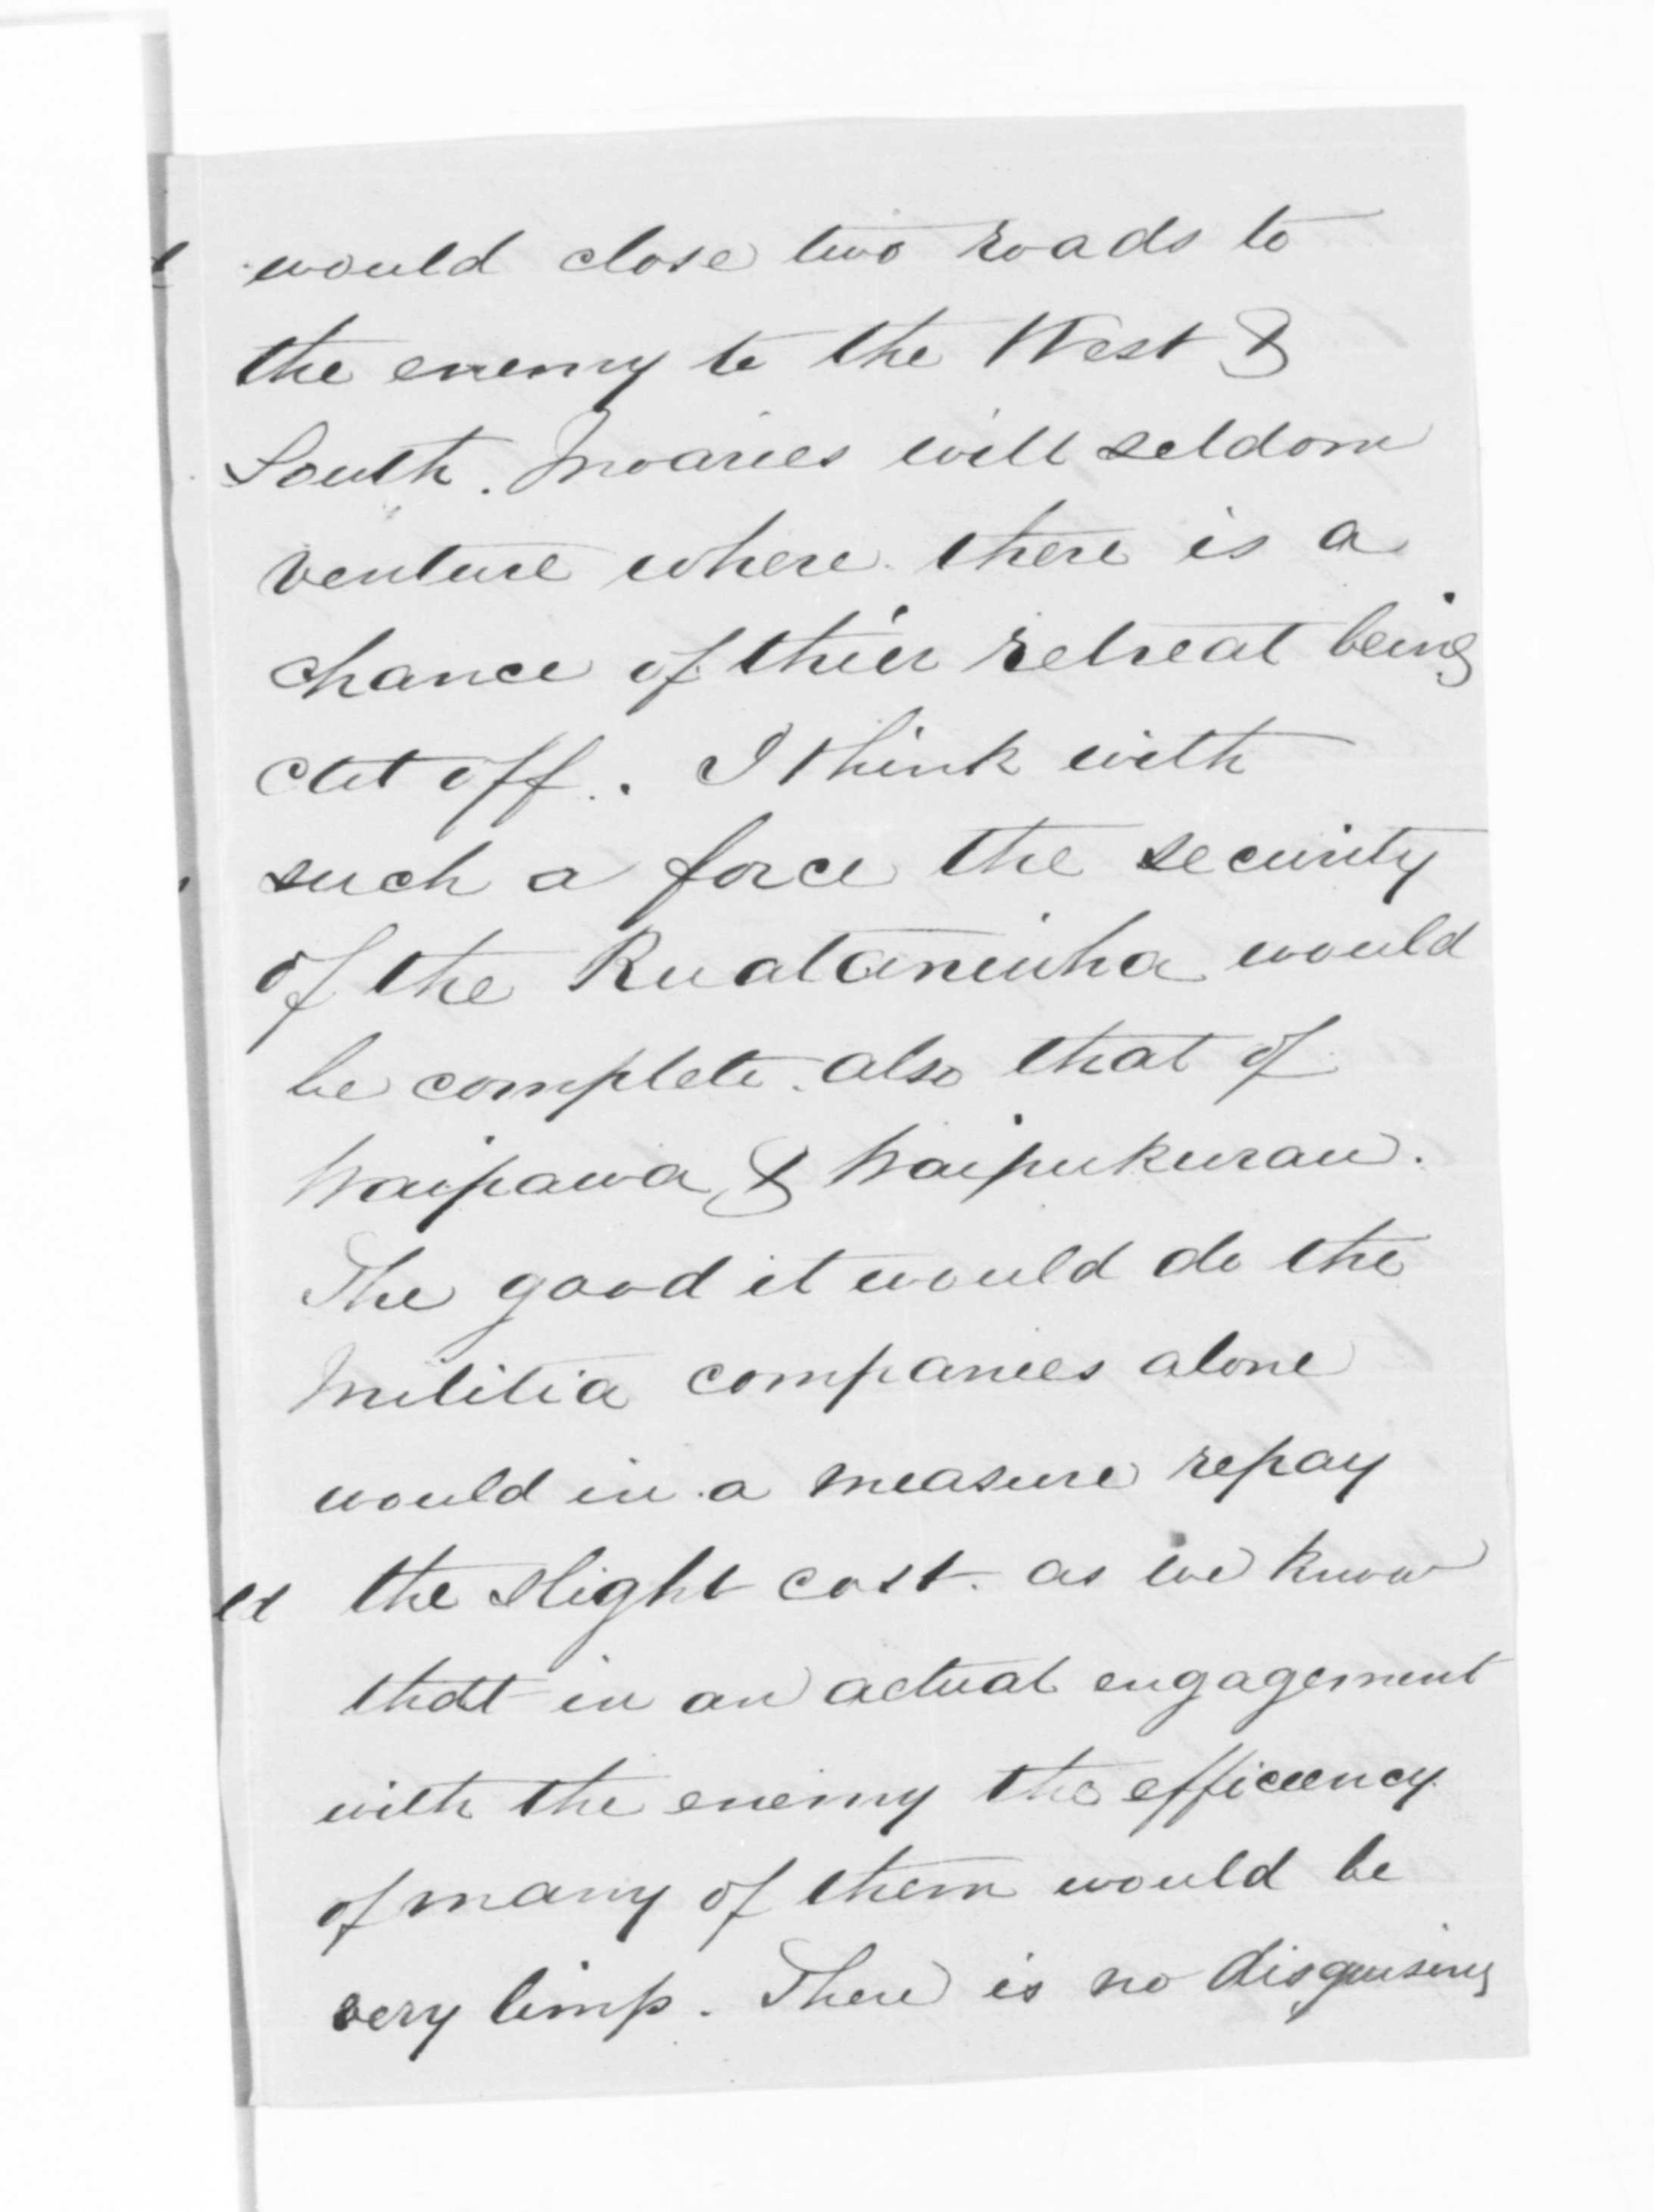 would close two roads to
the enemy to the West &
South. Moaries will seldom
venture where there is a
chance of thier retreat being
cut off. I think with
such a force the security
of the Ruataniwha would
be complete. also that of
Waipawa & Waipukurau.
The good it would do the
Militia companies alone
would in a measure repay
the slight cost. as we know
that in an actual engagement
with the enemy the efficiency
of many of them would be
very limp. There is no disguising